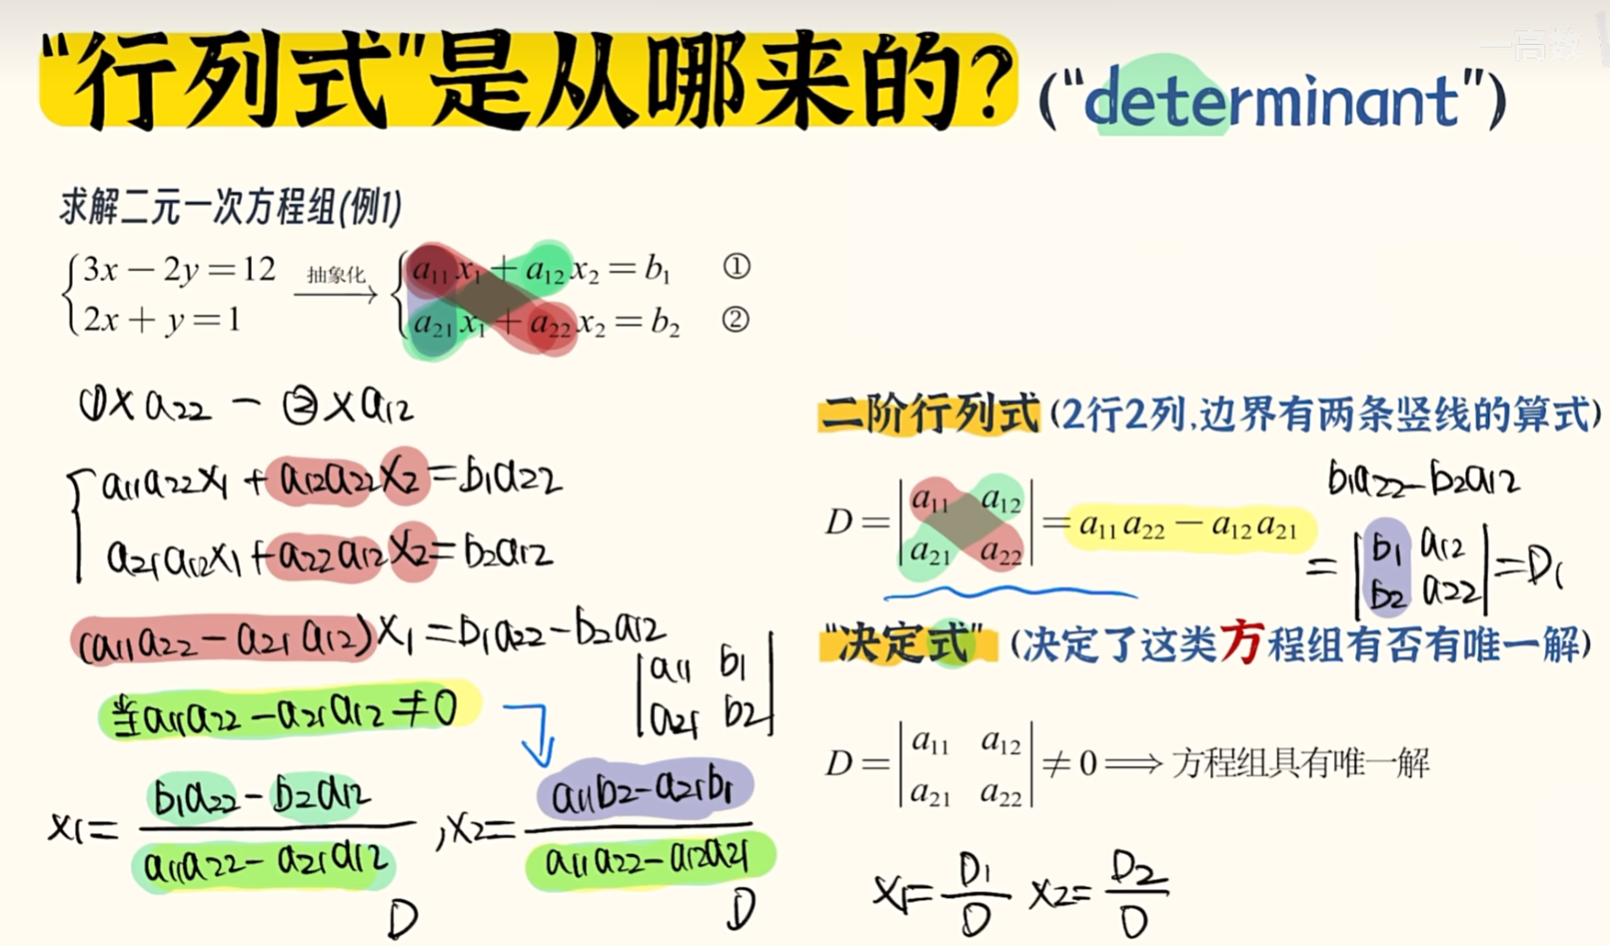 一高数
“行列式”是从哪来的？(“determinant”)
求解二元一次方程组(例1)
{3x－2y＝12
2x＋y＝1
抽象化
{a₁₁x₁＋a₁₂x₂＝b₁ ①
a₂₁x₁＋a₂₂x₂＝b₂ ②
①×a₂₂－②×a₁₂
{a₁₁a₂₂x₁＋a₁₂a₂₂x₂＝b₁a₂₂
a₂₁a₁₂x₁＋a₂₂a₁₂x₂＝b₂a₁₂
(a₁₁a₂₂－a₂₁a₁₂)x₁＝b₁a₂₂－b₂a₁₂
当a₁₁a₂₂－a₂₁a₁₂≠0
|a₁₁ b₁|
|a₂₁ b₂|
x₁＝(b₁a₂₂－b₂a₁₂)/(a₁₁a₂₂－a₂₁a₁₂), x₂＝(a₁₁b₂－a₂₁b₁)/(a₁₁a₂₂－a₁₂a₂₁)
D D
二阶行列式(2行2列,边界有两条竖线的算式)
D＝|a₁₁ a₁₂; a₂₁ a₂₂|＝a₁₁a₂₂－a₁₂a₂₁
b₁a₂₂－b₂a₁₂
＝|b₁ a₁₂; b₂ a₂₂|＝D₁
“决定式”(决定了这类方程组有否有唯一解)
D＝|a₁₁ a₁₂; a₂₁ a₂₂|≠0⟹方程组具有唯一解
x₁＝D₁/D x₂＝D₂/D